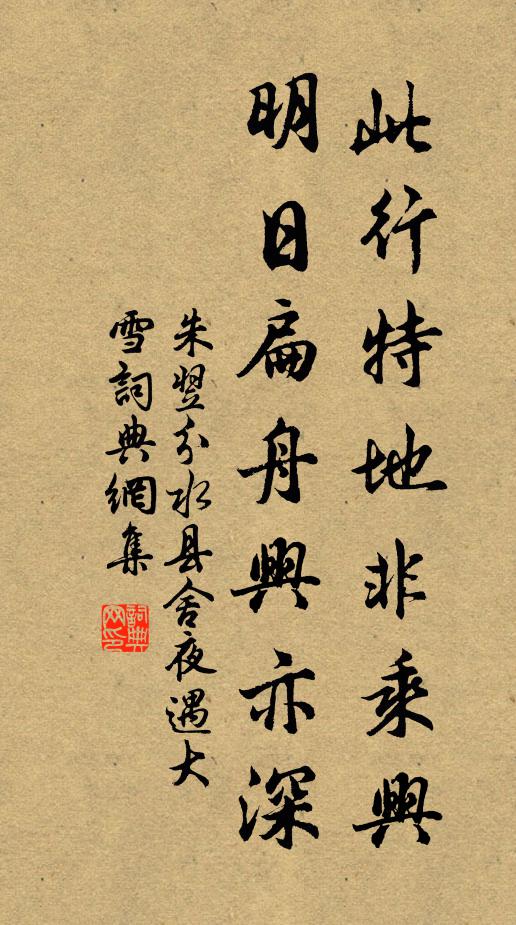 此行特地非乘興
明日扁舟興亦深
朱翌分水县舍夜遇大
雪詞典網集
詞典网印